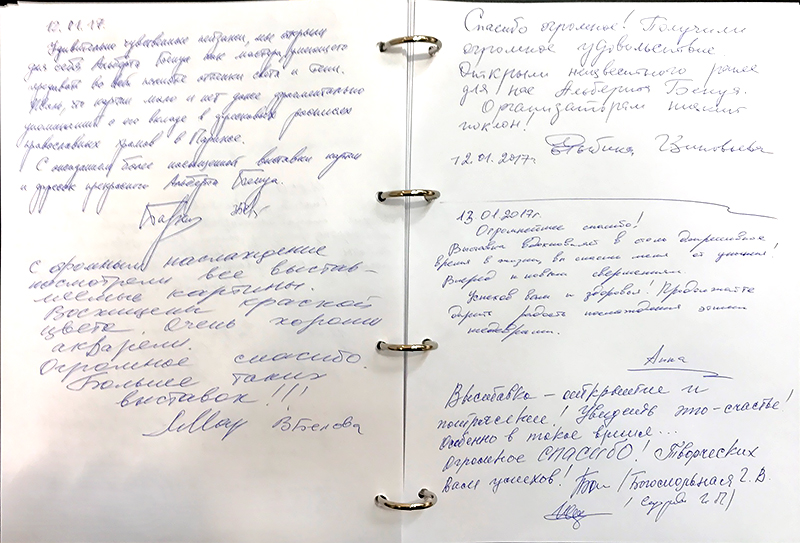 12.01.17.
Удивительно чувственные пейзажи, мы открыли
для себя Альберта Бенуа как мастера, умеющего
передавать во всей полноте оттенки света и тени.
Жаль, что картин мало и нет даже фрагментально
упоминания о его вкладе в церковных росписях
православных храмов в Париже.
С ожиданием более насыщенной выставки картин
и других прекрасного Альберта Бенуа.
С огромным наслаждение
посмотрели все выстав-
ляемые картины.
Восхищены краской
цвета. Очень хороши
акварели.
Огромное спасибо.
Больше таких
выставок!!!
В Белова
Спасибо огромное! Получили
огромное удовольствие.
Открыли неизвестного ранее
для нас Альберта Бенуа.
Организаторам низкий
поклон!
12.01.2017г
13.01.2017г.
Огромнейшее спасибо!
Выставка вдохновляет в столь депрессивное
время в жизни, вы спасли меня от уныния!
Вперед к новым свершениям.
Успехов вам и здоровья! Продолжайте
дарить радость наслаждения этими
шедеврами.
Анна
Выставка – открытие и
потрясение! Увидеть это – счастье!
Особенно в такое время...
Огромное СПАСИБО! Творческих
Вам успехов! Г. В.